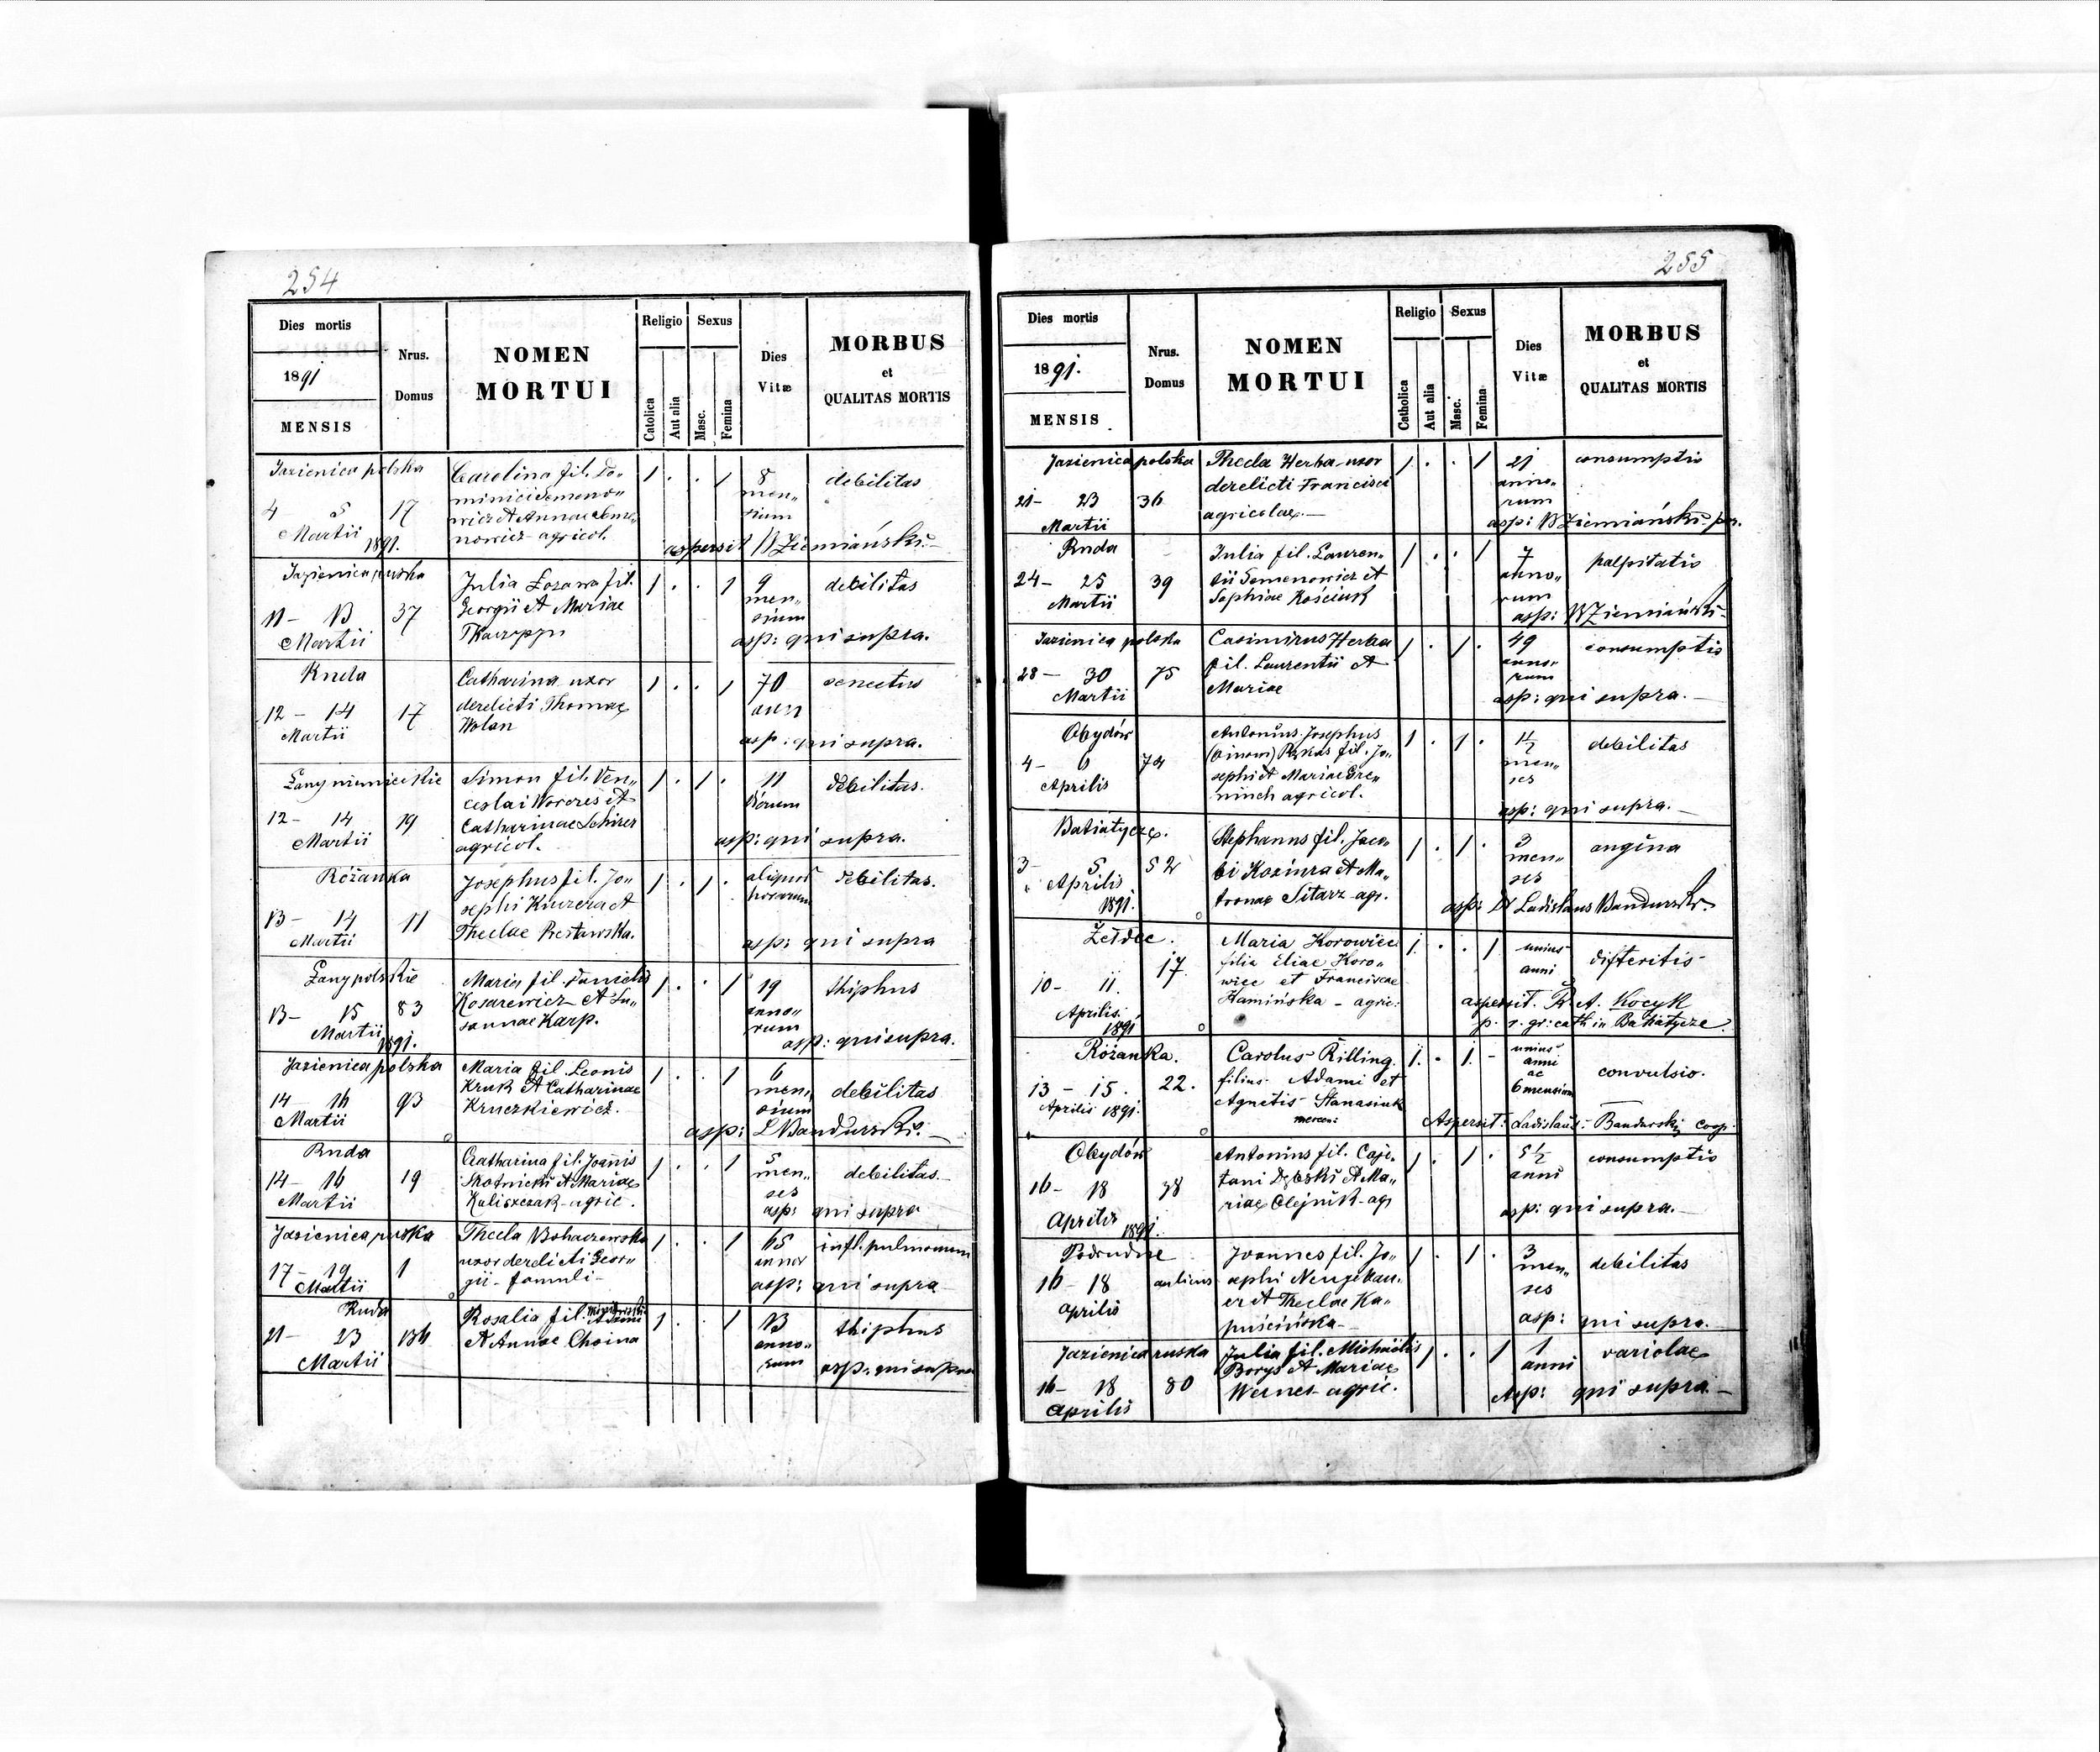 254
Dies mortis
1891
MENSIS
Nrus.
Domus
NOMEN
MORTUI
Religio
Sexus
Catolica
Aut alia
Masc.
Femina
Dies
Vitæ
MORBUS
et
QUALITAS MORTIS
Jazienica polska
4 5 17
Martii 1891.
Carolina fil. Do„
minici Semeno„
wicz et Annae
nowicz agricol.
1 . . 1
8
men„
sium
debilitas
aspersit W Ziemiański
Jazienica ruska
11 - 13 37
Martii
Julia Lozowa fil.
Georgii et Mariae
1 . . 1
9
men„
sium
debilitas
asp: qui supra.
Ruda
12 - 14 17
Martii
Catharina uxor
derelicti Thomae
Wolan
1 . . 1
70
ann
senectus
asp: qui supra.
Łany niemieckie
12 - 14 19
Martii
Simon fil. Ven„
ceslai Worores et
Catharinae Schirer
agricol.
1 . 1 .
11
diorum
debilitas.
asp: qui supra.
Różanka
13 - 14 11
Martii
Josephus fil. Jo„
sephi et
Theclae
1 . 1 .
aliquot
horarum
debilitas.
asp: qui supra
Łany polskie
13 - 15 83
Martii 1891.
Maria fil. Danielis
Kosarewicz et Su„
sannae Karp.
1 . . 1
19
anno„
rum
thiphus
asp: qui supra.
Jazienica polska
14 16 93
Martii
Maria fil. Leonis
Kruk et Catharinae
Kruczkiewicz.
1 . . 1
6
men„
sium
debilitas
asp: L Bandurski.
Ruda
14 - 16 19
Martii
Catharina fil. Joannis
Skotnicki et Mariae
Kaliszczak - agric.
1 . . 1
5
men„
ses
debilitas.
asp: qui supra
Jazienica ruska
17 - 19 1
Martii
Thecla Bohaczewska
uxor derelicti Geor„
gii - famuli -
1 . . 1
65
annor
infl. pulmonum
asp: qui supra
Ruda
21 - 23 136
Martii
Rosalia fil.
et Annae Choina
1 . . 1
13
anno„
rum
thiphus
asp: qui supra
255
Dies mortis
1891.
MENSIS
Nrus.
Domus
NOMEN
MORTUI
Religio
Sexus
Catholica
Aut alia
Masc.
Femina
Dies
Vitæ
MORBUS
et
QUALITAS MORTIS
Jazienica polska
21 - 23 36
Martii
Thecla Herba uxor
derelicti Francisci
agricolae.
1 . . 1
21
anno„
rum
consumptio
asp: W Ziemiański
Ruda
24 - 25 39
Martii
Julia fil. Lauren„
tii Semenowicz et
Sophiae Kościuk
1 . . 1
7
anno„
rum
palpitatio
asp: W Ziemiański
Jazienica polska
28 - 30 75
Martii
Casimirus Herba
fil. Laurentii et
Mariae
1 . 1 .
49
anno„
rum
consumptio
asp: qui supra.
Obydów
4 - 6 74
Aprilis
Antonius Josephus
(binom) fil. Jo„
sephi et Mariae Gre„
ninch agricol.
1 . 1 .
men„
ses
debilitas
asp: qui supra.
Batiatycze.
3 - 5 52
Aprilis
1891.
Stephanus fil. Jaco„
bi Kozinra et Ma„
tronae Sitarz agr.
1 . 1 .
3
men„
ses
angina
asp: Ladislaus Bandurski
Żełdec.
10 - 11. 17.
Aprilis.
1891
Maria Horowiec
filia Eliae Horo„
wiec et Franciscae
Kamińska - agric:
1. . . 1
unius
anni
difteritis
aspersit. A. Kocyk
p. r. gr: cath in Batiatycze.
Różanka.
13 - 15. 22.
Aprilis 1891.
Carolus Rilling.
filius Adami et
Agnetis Stanasiuk
1. . 1. -
unius
anni
ac
6 mensium
convulsio.
Aspersit: Ladislaus Bandurski coop.
Obydów
16 - 18 38
Aprilis
1891.
Antonius fil. Caje„
tani Dębski et Ma„
riae Olejnik - agr
1 . 1 .
5 ½
anni
consumptio
asp: qui supra.
Podrudne
16 - 18
Aprilis
Joannes fil. Jo„
sephi Neugebau„
er et Theclae Ka„
puścińska
1 . 1 .
3
men„
ses
debilitas
asp: qui supra.
Jazienica ruska
16 - 18 80
Aprilis
Julia fil. Michaelis
Borys et Mariae
Werner - agric.
1 . . 1
1
anni
variolae
Asp: qui supra.